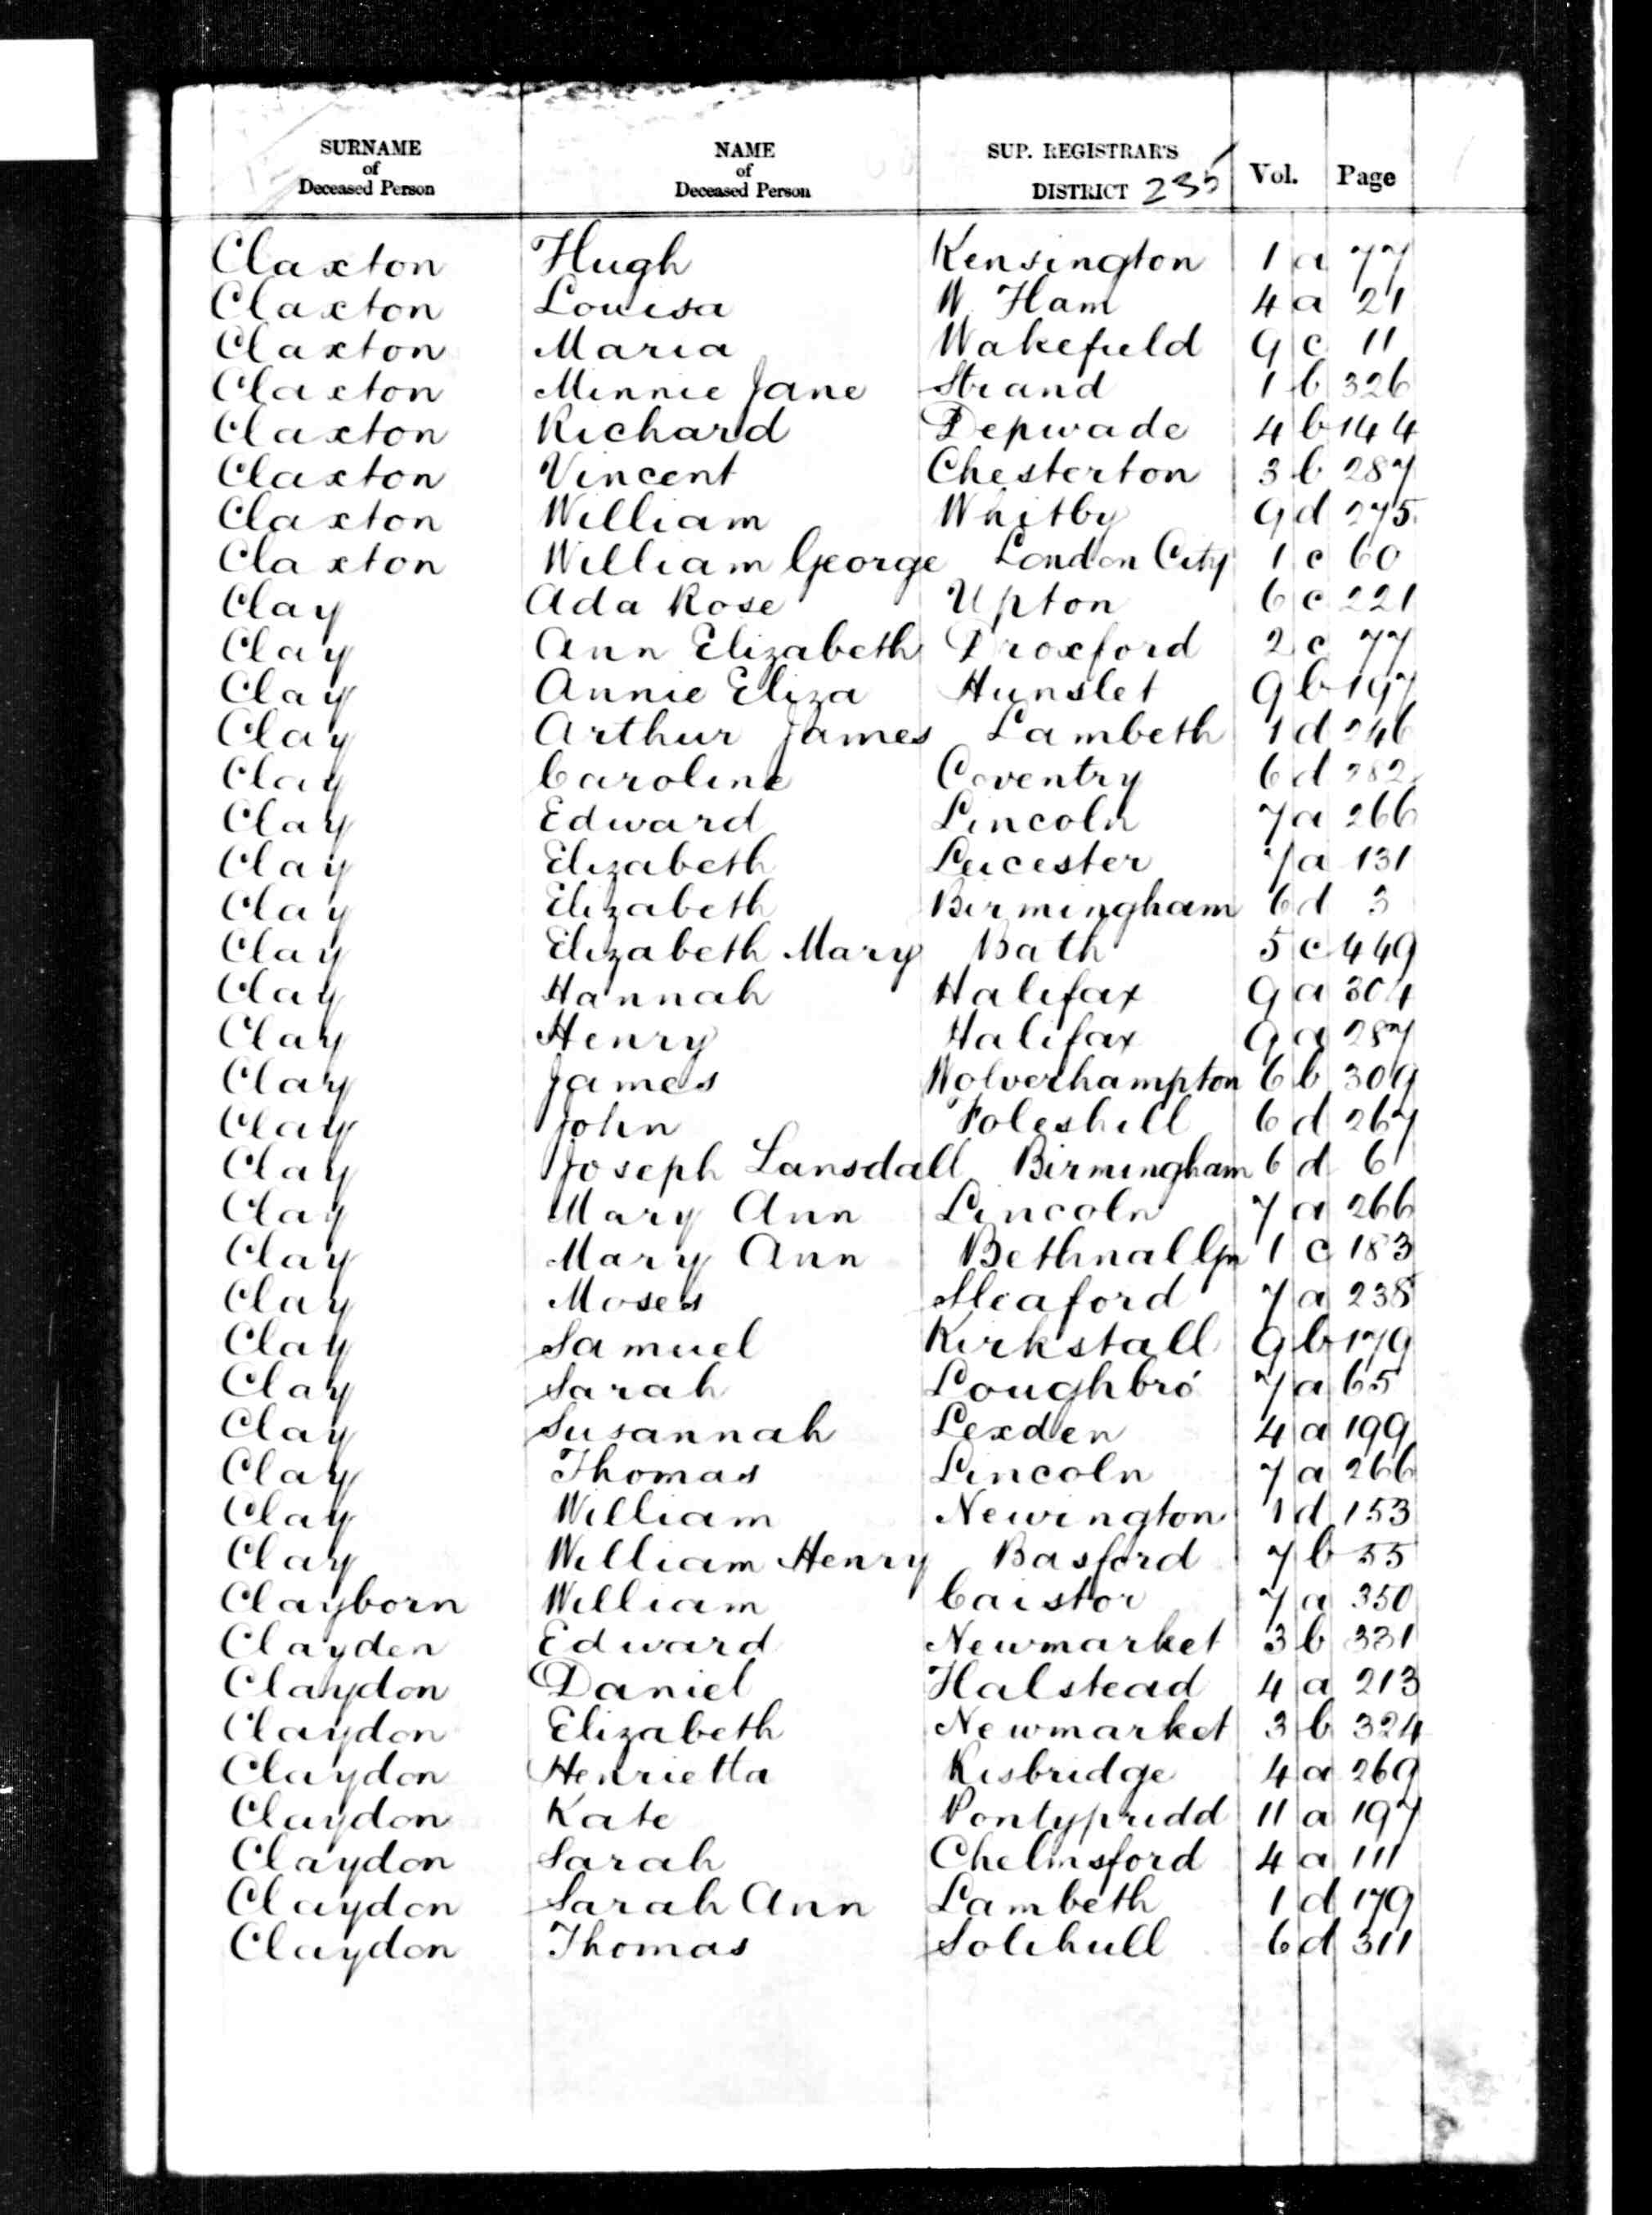 SURNAME of Deceased Person NAME of Deceased Person SUP. REGISTRAR'S DISTRICT 235 Vol. Page
Claxton Hugh Kensington 1 a 77
Claxton Louisa W. Ham 4 a 21
Claxton Maria Wakefield 9 c 11
Claxton Minnie Jane Strand 1 b 326
Claxton Richard Depwade 4 b 144
Claxton Vincent Chesterton 3 b 287
Claxton William Whitby 9 d 275
Claxton William George London City 1 c 60
Clay Ada Rose Upton 6 c 221
Clay Ann Elizabeth Droxford 2 c 77
Clay Annie Eliza Hunslet 9 b 197
Clay Arthur James Lambeth 1 d 246
Clay Caroline Coventry 6 d 282
Clay Edward Lincoln 7 a 266
Clay Elizabeth Leicester 7 a 131
Clay Elizabeth Birmingham 6 d 3
Clay Elizabeth Mary Bath 5 c 449
Clay Hannah Halifax 9 a 304
Clay Henry Halifax 9 a 287
Clay James Wolverhampton 6 b 309
Clay John Foleshill 6 d 267
Clay Joseph Lansdall Birmingham 6 d 6
Clay Mary Ann Lincoln 7 a 266
Clay Mary Ann Bethnal Gn 1 c 183
Clay Moses Sleaford 7 a 238
Clay Samuel Kirkstall 9 b 179
Clay Sarah Loughbro' 7 a 65
Clay Susannah Lexden 4 a 199
Clay Thomas Lincoln 7 a 266
Clay William Newington 1 d 153
Clay William Henry Basford 7 b 55
Clayborn William Caistor 7 a 350
Clayden Edward Newmarket 3 b 331
Claydon Daniel Halstead 4 a 213
Claydon Elizabeth Newmarket 3 b 324
Claydon Henrietta Risbridge 4 a 269
Claydon Kate Pontypridd 11 a 197
Claydon Sarah Chelmsford 4 a 111
Claydon Sarah Ann Lambeth 1 d 179
Claydon Thomas Solihull 6 d 311